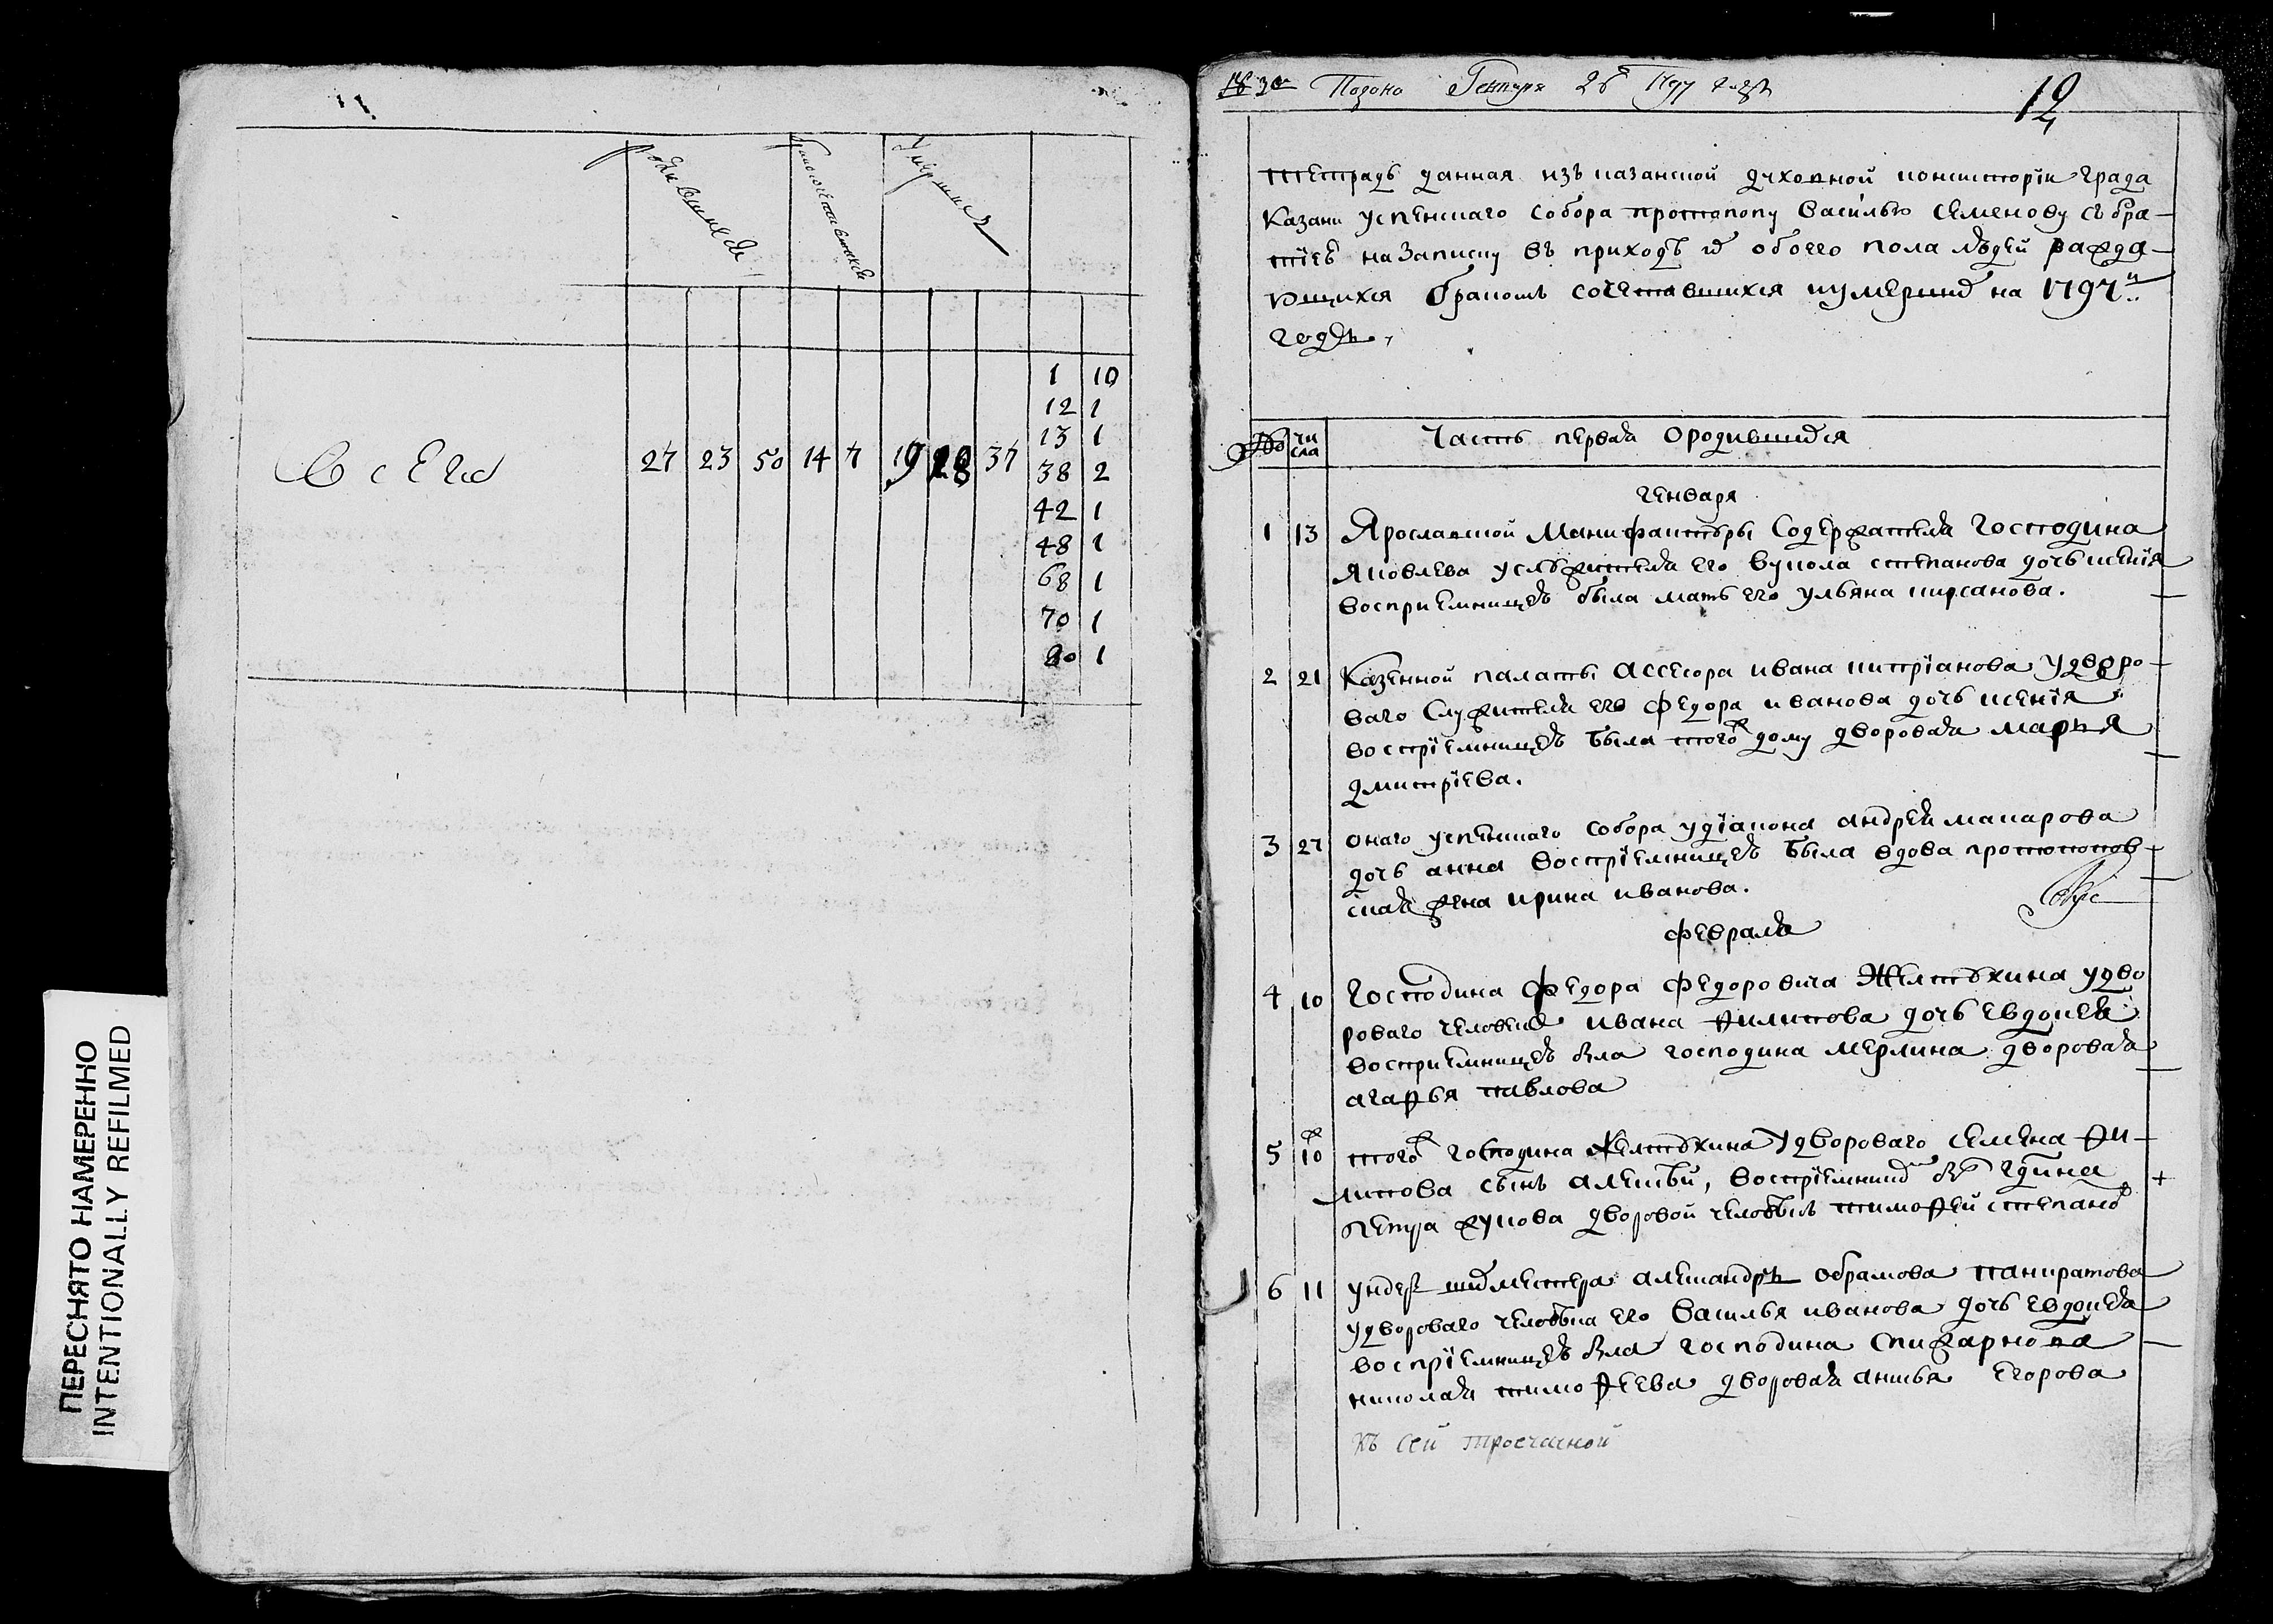 родившихся
бракосочетавшихся
умерших
1 10
12 1
13 1
Всего 27 23 50 14 7 19 18 37
38 2
42 1
48 1
68 1
70 1
80 1
ПЕРЕСНЯТО НАМЕРЕННО
INTENTIONALLY REFILMED
№ 30 Подана Генваря 26 1797 года
12
Тетрадь данная изъ казанской духовной консисторіи града
Казани успенскаго собора протопопу василью семенову съ бра-
тіею на записку въ приходѣ ихъ обоего пола людей ражда-
ющихся бракомъ сочетавшихся и умершихъ на 1797й
годъ,
числа
Часть первая о родившихся
генваря
1 13 Ярославской манифактуры содержателя господина
яковлева у служителя его вукола степанова дочь ксенія
воспріемницею была мать его ульяна кирсанова.
2 21 Казенной палаты ассесора ивана китріанова у дворо-
ваго служителя его федора иванова дочь ксенія
воспріемницею была тогожъ дому дворовая марья
дмитріева.
3 27 онаго успенскаго собора у діакона андрея макарова
дочь анна воспріемницею была вдова протопопов-
ская жена ирина иванова.
февраля
4 10 Господина Федора Федоровича Желтухина у дво
роваго человека ивана филипова дочь евдокея
воспріемницею была господина мерлина дворовая
агафья павлова
5 10 тогожъ господина Желтухина у двороваго семена фи-
липова сынъ алексѣй, воспріемникъ былъ гдина
петра жукова дворовой человѣкъ тимофей степановъ
6 11 ундеръ шихмейстера александръ обрамова панкратова
у двороваго человѣка его василья иванова дочь евдокея
воспріемницею была господина спижарнова
николая тимофеева дворовая анисья егорова
къ сей троечасной